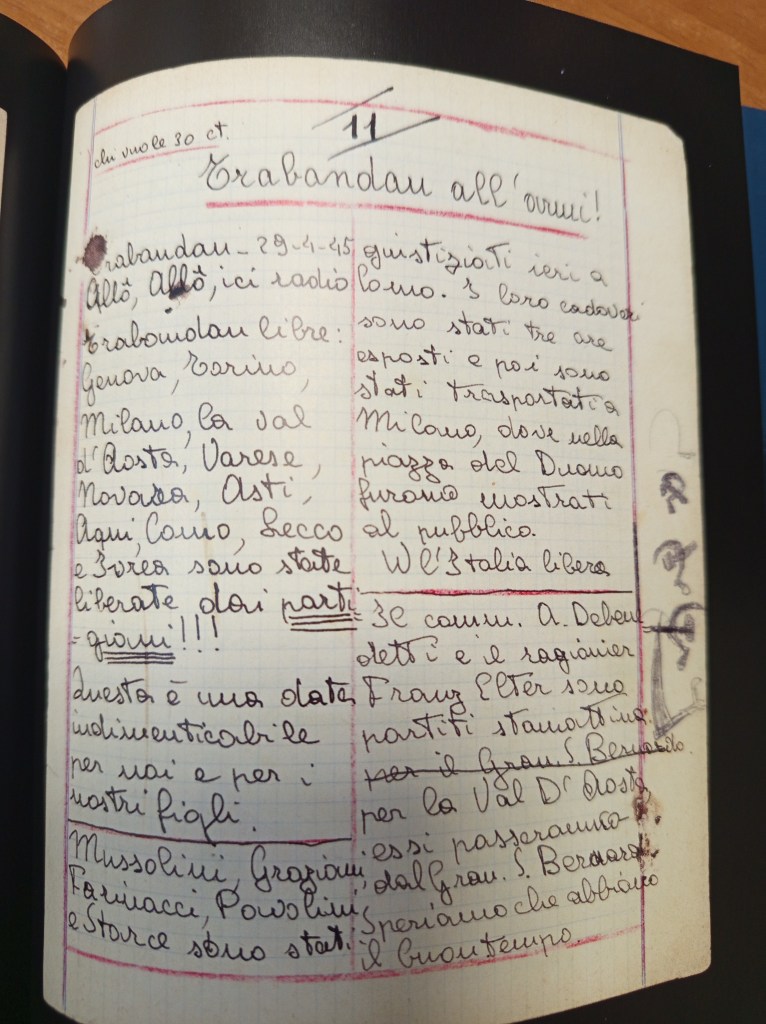 11
chi vuole 30 ct.
Trabandan all'armi!
Trabandan - 29-4-45
Allô, Allô, ici radio
Trabandan libre:
Genova, Torino,
Milano, la val
d'Aosta, Varese,
Novara, Asti,
Aqui, Como, Lecco
e Ivrea sono state
liberate dai parti=
=giani!!!
Questa è una data
indimenticabile
per noi e per i
nostri figli.
Mussolini, Graziani,
Farinacci, Pavolini,
e Starce sono stati
giustiziati ieri a
Como. I loro cadaveri
sono stati tre ore
esposti e poi sono
stati trasportati a
Milano, dove nella
piazza del Duomo
furono mostrati
al pubblico.
W l'Italia libera
Il comm. A. Deben=
detti e il ragionier
Franz Elter sono
partiti stamattina
per il Gran. S. Bernardo.
per la Val D'Aosta
essi passeranno
dal Gran. S. Bernardo.
Speriamo che abbiano
il buon tempo.